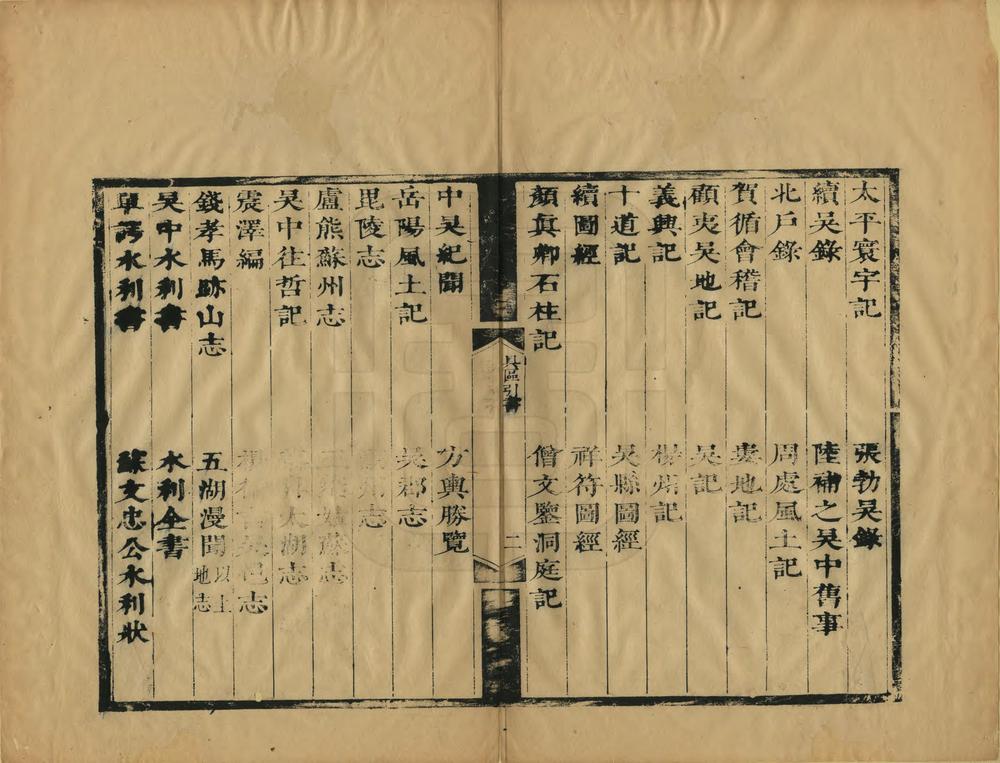 太平寰宇記　張勃吳錄
續吳錄　陸補之吳中舊事
北戶錄　周處風土記
賀循會稽記　婁地記
顧夷吳地記　吳記
義興記　楊州記
十道記　吳縣圖經
續圖經　祥符圖經
顏眞卿石柱記　僧文鑒洞庭記
具區引書
二
中吳紀聞　方輿勝覽
岳陽風土記　吳郡志
毘陵志　州志
盧熊蘇州志　蘇志
吳中往哲記　太湖志
震澤編　吳邑志
錢孝馬跡山志　五湖漫聞以上地志
吳中水利書　水利全書
單諤水利書　蘇文忠公水利狀